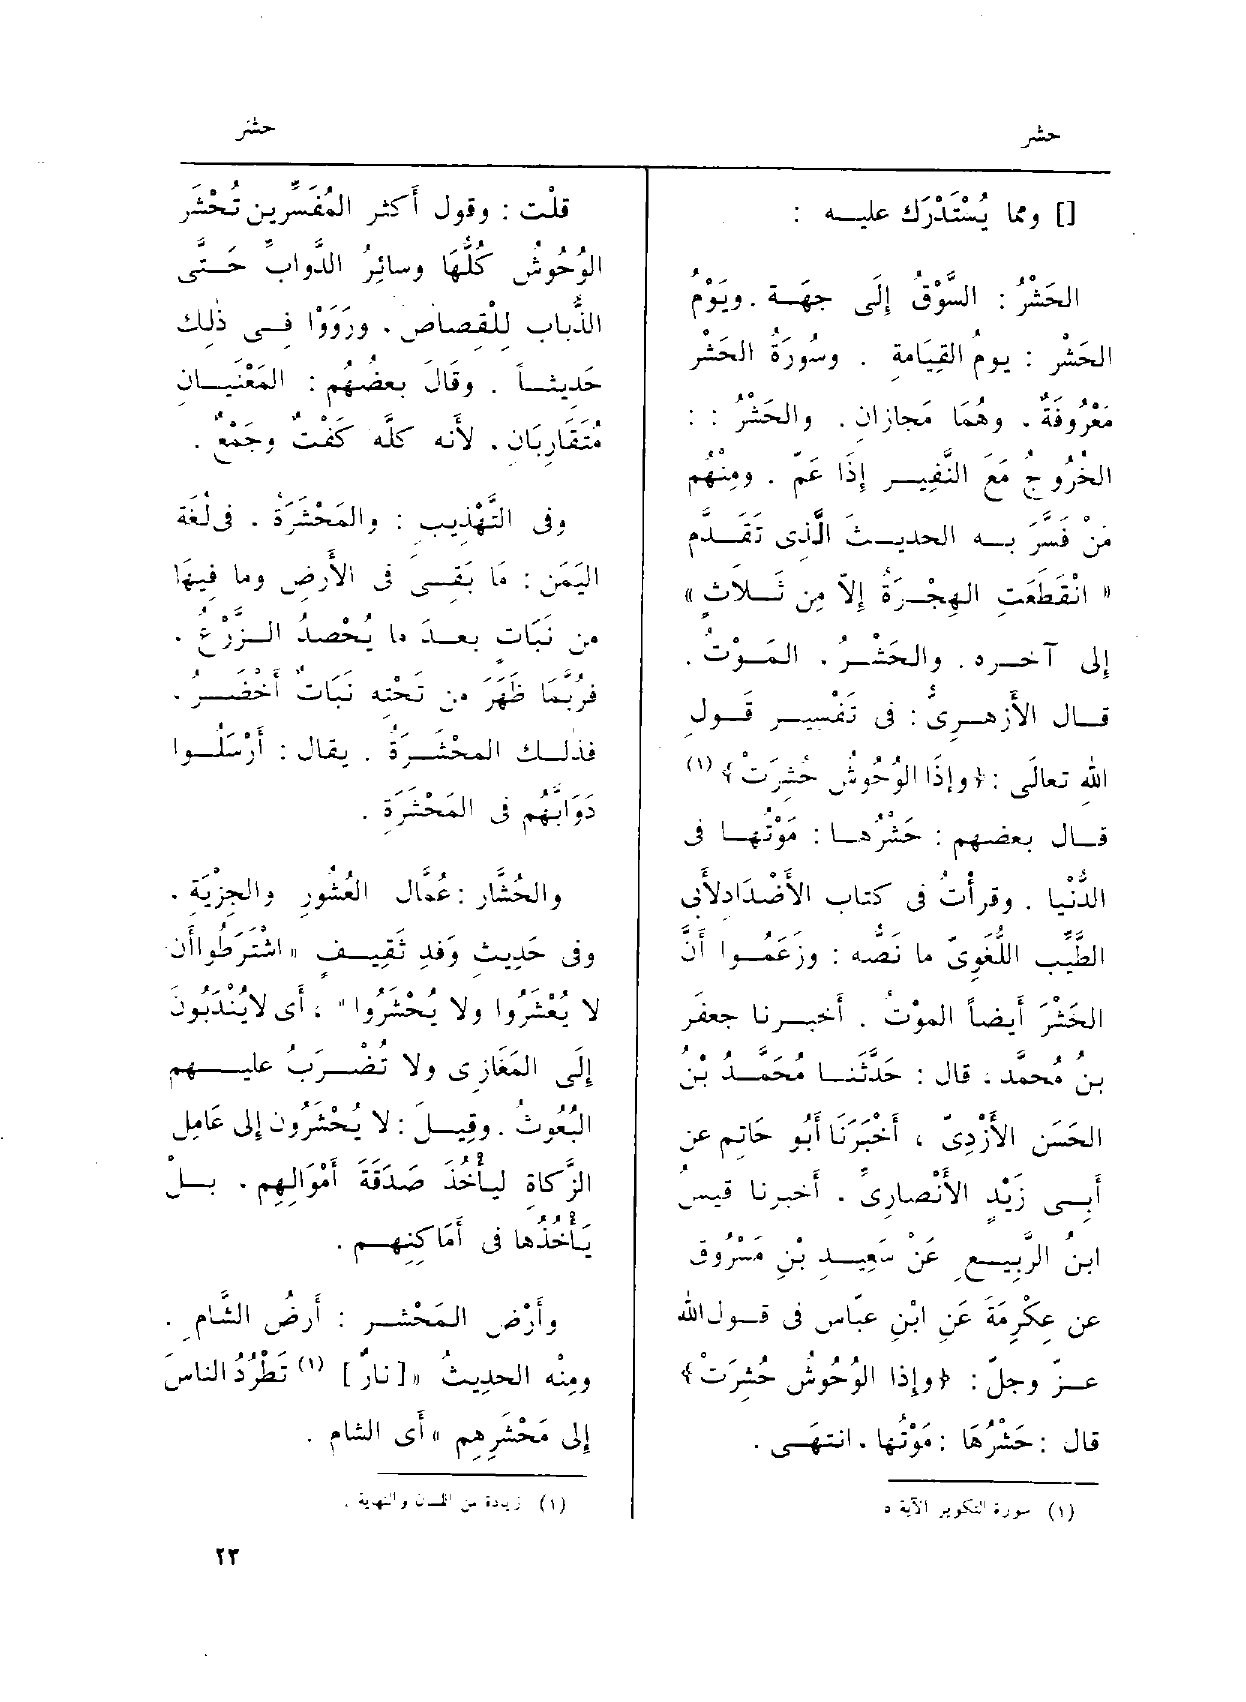 حشر
حشر
[] ومما يُسْتَدْرَك عليه :
الحَشْرُ : السَّوْقُ إِلَى جِهَة . ويَوْمُ
الحَشْرِ : يومُ القِيَامة . وسُورَةُ الحَشْرِ
مَعْرُوفَةٌ . وهُمَا مَجازان . والحَشْرُ : :
الخُرُوجُ مَعَ النَّفِيرِ إِذَا عَمّ . ومِنْهُم
مَنْ فَسَّرَ به الحديثَ الَّذِى تَقَدَّم
« انْقَطَعَتِ الهِجْرَةُ إِلاّ مِن ثَلاثٍ »
إلى آخره . والحَشْرُ . المَوْتُ .
قال الأَزهرىُّ : فى تَفْسِيرِ قَولِ
الله تعالَى : ﴿ وإِذَا الوُحُوشُ حُشِرَتْ ﴾ (١)
قال بعضهم : حَشْرُها : مَوْتُها فى
الدُّنْيا . وقرأْتُ فى كتاب الأَضْدَادِلأَبى
الطَّيِّب اللُّغَوِىّ ما نَصُّه : وزَعَمُوا أَنَّ
الحَشْرَ أَيضاً الموْتُ . أَخبرنا جعفَر
بنُ مُحمَّد ، قال : حَدَّثَنا مُحَمَّد بْنُ
الحَسَنِ الأَزْدِىّ ، أَخبَرَنَا أَبُو حَاتِم عن
أَبِى زَيْدٍ الأَنْصارِىّ . أَخبرنا قيسُ
ابنُ الرَّبِيعِ عَنْ سَعِيدِ بْنِ مَسْرُوق
عن عِكْرِمَةَ عَنِ ابْنِ عبّاس فى قول الله
عزّ وجلّ : ﴿ وإِذا الوُحُوشُ حُشِرَتْ ﴾
قال : حَشْرُهَا : مَوْتُها . انتهَى .
(١) سورة التكوير الآية ٥
قلْت : وقول أَكثر المُفَسِّرين تُحْشَر
الوُحُوشُ كُلُّهَا وسائِرُ الدَّوابِّ حَتَّى
الذُّبَاب لِلْقِصاص . ورَوَوْا فى ذٰلِك
حَدِيثاً . وقَالَ بعضُهُم : المَعْنَيَان
مُتَقَارِبَان . لأَنه كلَّه كَفْتٌ وجَمْعٌ .
وفى التَّهْذِيب : والمَحْشَرَةُ . فى لُغَة
اليَمَن : مَا بَقِىَ فى الأَرضِ وما فِيهَا
من نَبَات بعدَ ما يُحْصَدُ الزَّرْعُ .
فرُبَّمَا ظَهَرَ من تَحْتِه نَبَاتٌ أَخْضَرُ .
فذٰلك المحْشَرَةُ . يقال : أَرْسَلُوا
دَوَابَّهُم فى المَحْشَرَةِ .
والحُشَّار : عُمَّال العُشُورِ والجِزْيَة .
وفى حَدِيثِ وَفدِ ثَقِيفٍ « اشْتَرَطُوا أَن
لا يُعْشَرُوا ولا يُحْشَرُوا » ، أَى لا يُنْدَبُونَ
إِلَى المَغَازِى ولا تُضْرَبُ عليهم
البُعُوثُ . وقِيلَ : لا يُحْشَرُون إلى عَامِل
الزَّكاةِ ليأْخُذَ صَدَقَةَ أَمْوَالِهِم . بل
يَأْخُذُها فى أَمَاكِنِهِم .
وأَرْض المَحْشَرِ : أَرضُ الشَّام .
ومِنْه الحدِيثُ « [ نارٌ ] (١) تَطْرُدُ الناسَ
إلى مَحْشَرِهِم » أَى الشام .
(١) زيادة من اللسان والنهاية .
٢٣